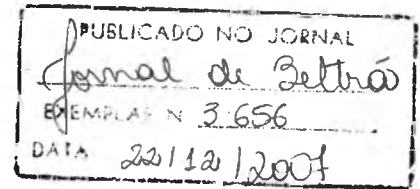 PUBLICADO NO JORNAL
Jornal de Beltrão
EXEMPLAR N 3.656
DATA 22/12/2007